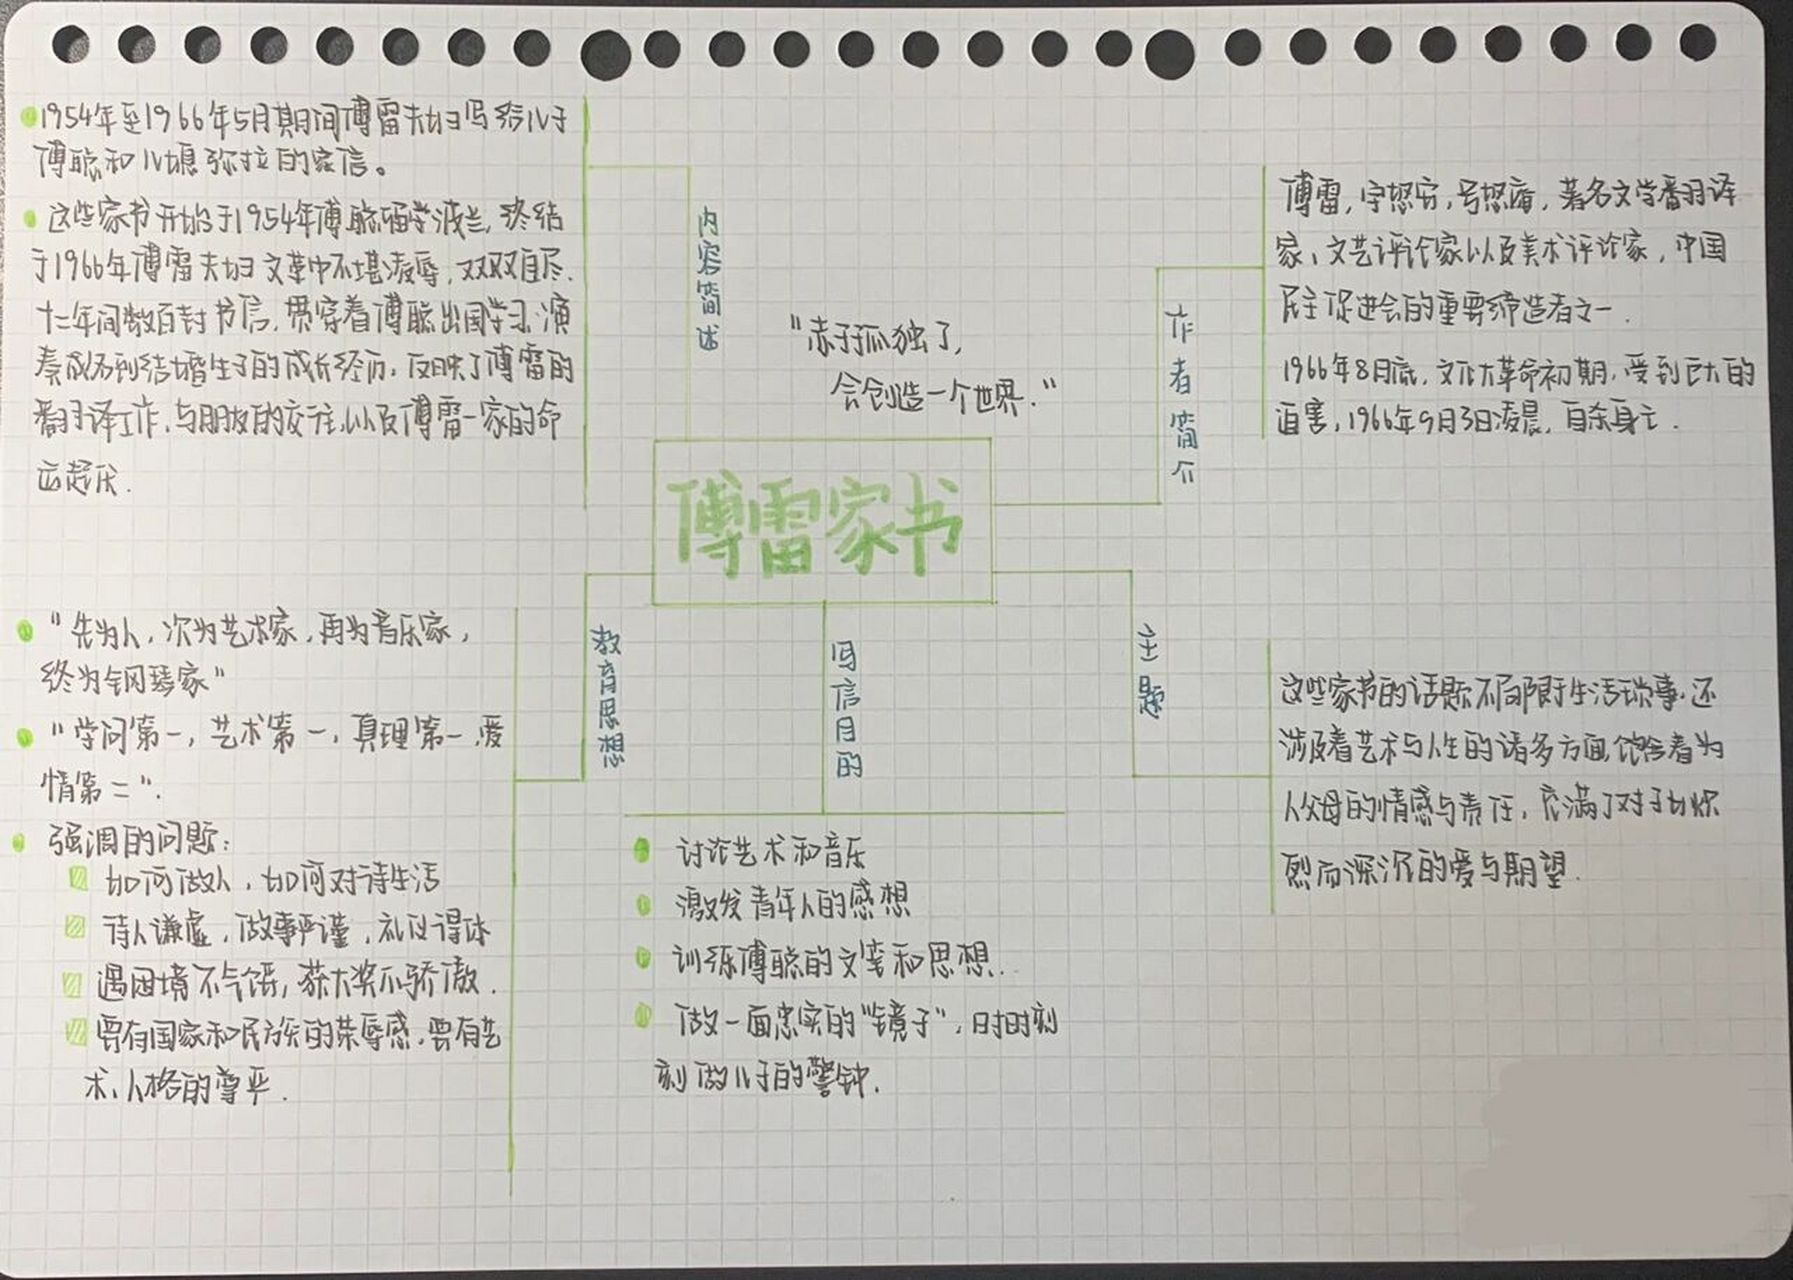 1954年至1966年5月期间傅雷夫妇写给儿子
傅聪和儿媳弥拉的家信。
这些家书开始于1954年傅聪留学波兰,终结
于1966年傅雷夫妇文革中不堪凌辱,双双自尽.
十二年间数百封书信,贯穿着傅聪出国学习、演
奏成名到结婚生子的成长经历,反映了傅雷的
翻译工作,与朋友的交往,以及傅雷一家的命
运起伏.
内容简述
"赤子孤独了,
会创造一个世界."
作者简介
傅雷,字怒安,号怒庵,著名文学翻译
家、文艺评论家以及美术评论家,中国
民主促进会的重要缔造者之一.
1966年8月底,文化大革命初期,受到巨大的
迫害,1966年9月3日凌晨,自杀身亡.
傅雷家书
教育思想
"先为人,次为艺术家,再为音乐家,
终为钢琴家"
"学问第一,艺术第一,真理第一,爱
情第二".
强调的问题:
如何做人,如何对待生活
待人谦虚,做事严谨,礼仪得体
遇困境不气馁,获大奖不骄傲.
要有国家和民族的荣辱感,要有艺
术、人格的尊严.
写信目的
讨论艺术和音乐
激发青年人的感想
训练傅聪的文笔和思想.
做一面忠实的"镜子",时时刻
刻做儿子的警钟.
主题
这些家书的话题不局限于生活琐事,还
涉及着艺术与人生的诸多方面,饱含着为
人父母的情感与责任,充满了对子女炽
烈而深沉的爱与期望.